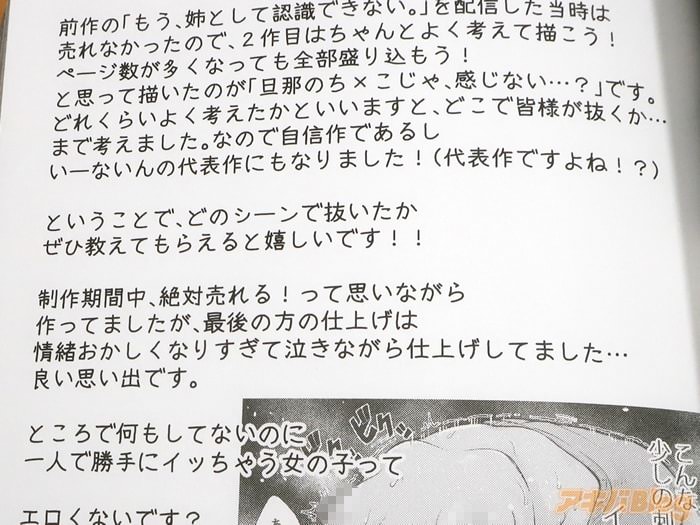 前作の「もう、姉として認識できない。」を配信した当時は
売れなかったので、２作目はちゃんとよく考えて描こう！
ページ数が多くなっても全部盛り込もう！
と思って描いたのが「旦那のち×こじゃ、感じない…？」です。
どれくらいよく考えたかといいますと、どこで皆様が抜くか…
まで考えました。なので自信作であるし
いーないんの代表作にもなりました！（代表作ですよね！？）
ということで、どのシーンで抜いたか
ぜひ教えてもらえると嬉しいです！！
制作期間中、絶対売れる！って思いながら
作ってましたが、最後の方の仕上げは
情緒おかしくなりすぎて泣きながら仕上げしてました…
良い思い出です。
ところで何もしてないのに
一人で勝手にイッちゃう女の子って
エロくないです？
こんな
少しの刺
アキバBlog